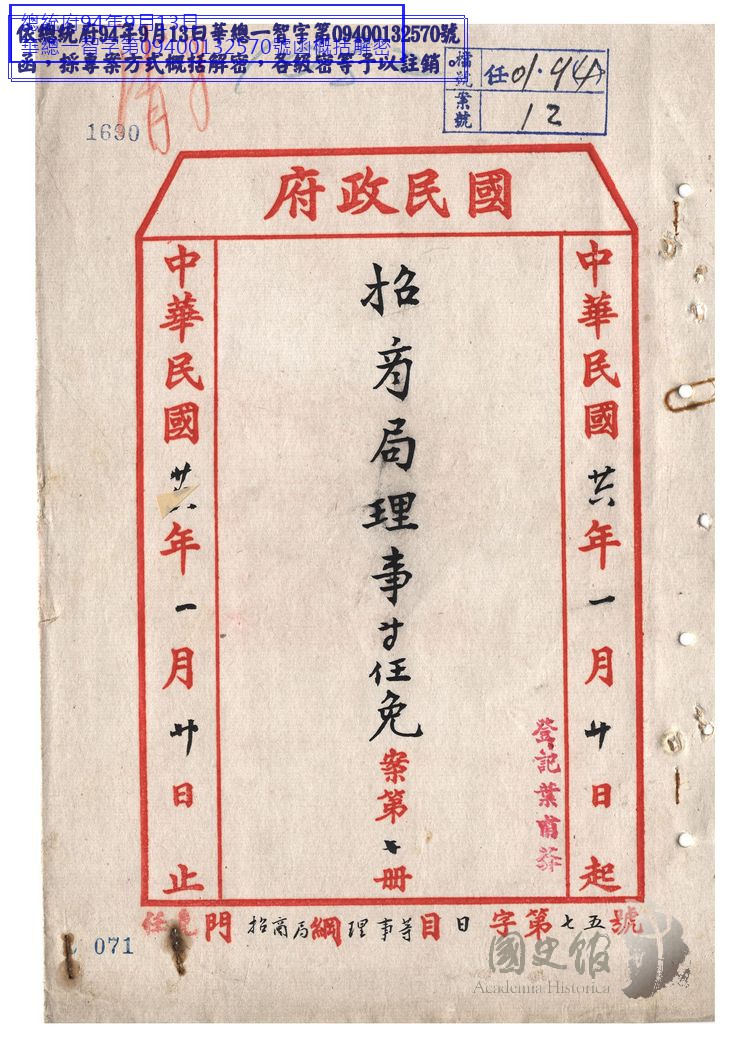 總統府94年9月13日
華總一智字第09400132570號函概括解密
依總統府94年9月13日華總一智字第09400132570號
函，採專案方式概括解密，各級密等予以註銷。
檔號 任01.44
案號 12
1690
國民政府
中華民國廿六年一月廿日起
登記葉甫莽
招商局理事等任免案第七冊
中華民國廿六年一月廿日止
任免門招商局綱理事等目日字第七五號
071
國史館
Academia Historica